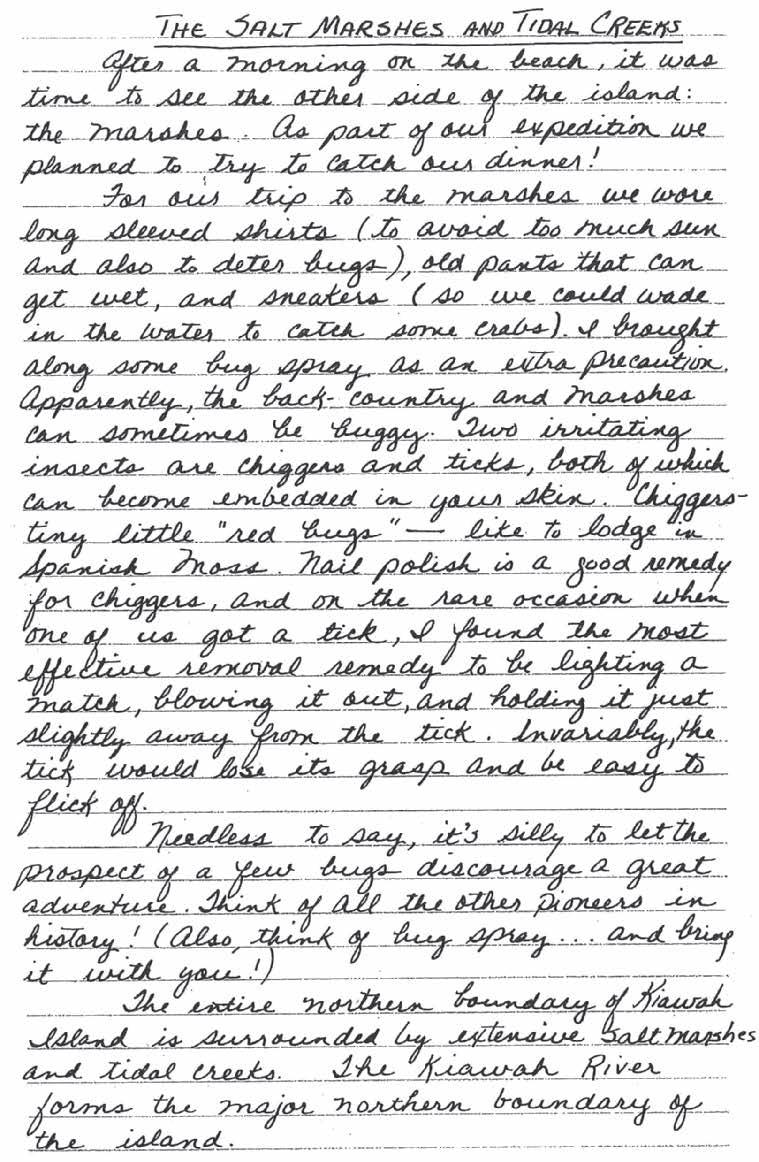 THE SALT MARSHES AND TIDAL CREEKS
After a morning on the beach, it was
time to see the other side of the island:
the marshes. As part of our expedition we
planned to try to catch our dinner!
For our trip to the marshes we wore
long sleeved shirts (to avoid too much sun
and also to deter bugs), old pants that can
get wet, and sneakers (so we could wade
in the water to catch some crabs). I brought
along some bug spray as an extra precaution.
Apparently, the back-country and marshes
can sometimes be buggy. Two irritating
insects are chiggers and ticks, both of which
can become embedded in your skin. Chiggers-
tiny little "red bugs" — like to lodge in
Spanish Moss. Nail polish is a good remedy
for chiggers, and on the rare occasion when
one of us got a tick, I found the most
effective removal remedy to be lighting a
match, blowing it out, and holding it just
slightly away from the tick. Invariably, the
tick would lose its grasp and be easy to
flick off.
Needless to say, it's silly to let the
prospect of a few bugs discourage a great
adventure. Think of all the other pioneers in
history! (Also, think of bug spray... and bring
it with you!)
The entire northern boundary of Kiawah
Island is surrounded by extensive salt marshes
and tidal creeks. The Kiawah River
forms the major northern boundary of
the island.